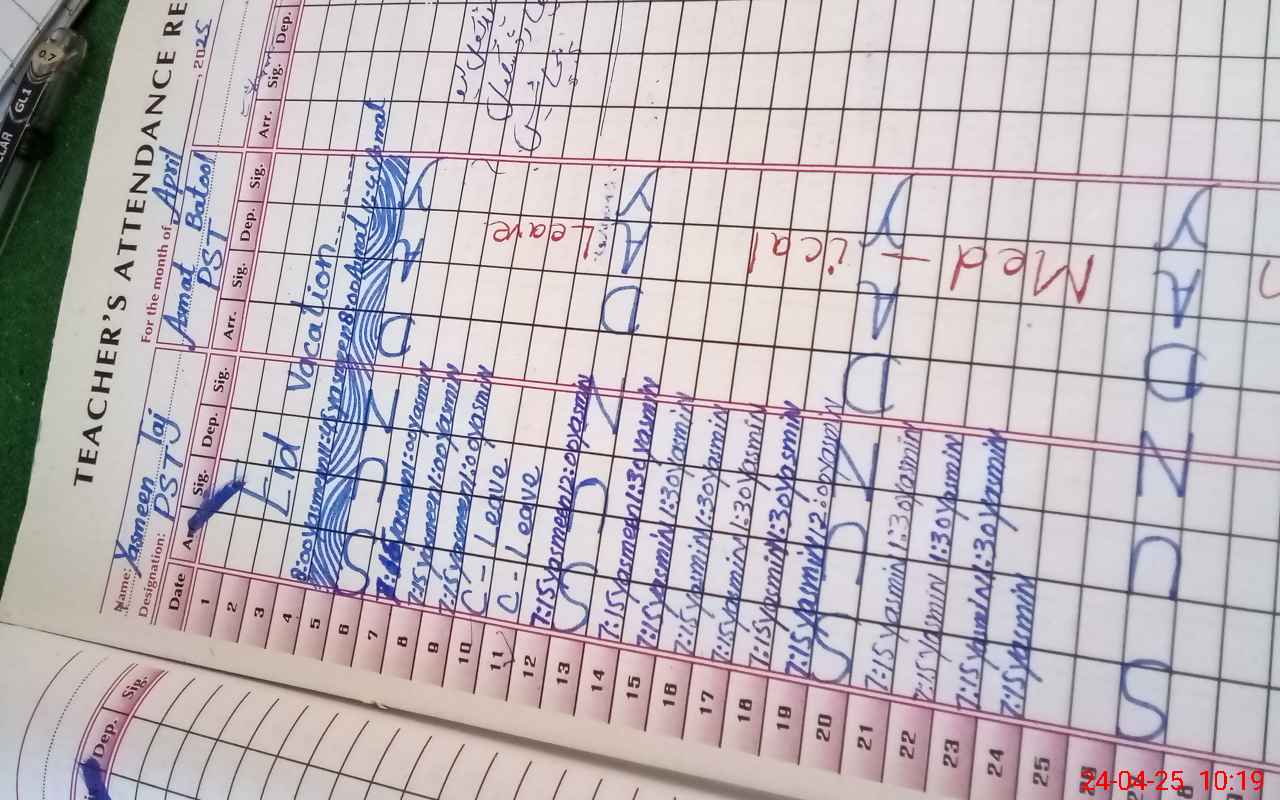 TEACHER'S ATTENDANCE RE
For the month of April, 2025
Name: Yasmeen Taj Asmat Batool
Designation: PST PST
Date Arr. Sig. Dep. Sig. Arr. Sig. Dep. Sig. Arr. Sig. Dep.
1
2
3 Eid Vocation
4
5
6 SUNDAY
7
8 7:15 yasmeen 1:00 yasmin
9 7:15 yasmeen 1:00 yasmin
10 C - Leave
11 C - Leave Leave
12 7:15 yasmeen 12:00 yasmin
13 SUNDAY
14 7:15 yasmeen 1:30 yasmin
15 7:15 yasmin 1:30 yasmin
16 7:15 yasmin 1:30 yasmin
17 7:15 yasmin 1:30 yasmin
18 7:15 yasmin 1:30 yasmin
19 7:15 yasmin 12:00 yasmin
20 SUNDAY
21 7:15 yasmin 1:30 yasmin
22 7:15 yasmin 1:30 yasmin
23 7:15 yasmin 1:30 yasmin
24 7:15 yasmin
25
26
27 SUNDAY
Med - ical
Dep. Sig.
GL1
0.7
24-04-25 10:19